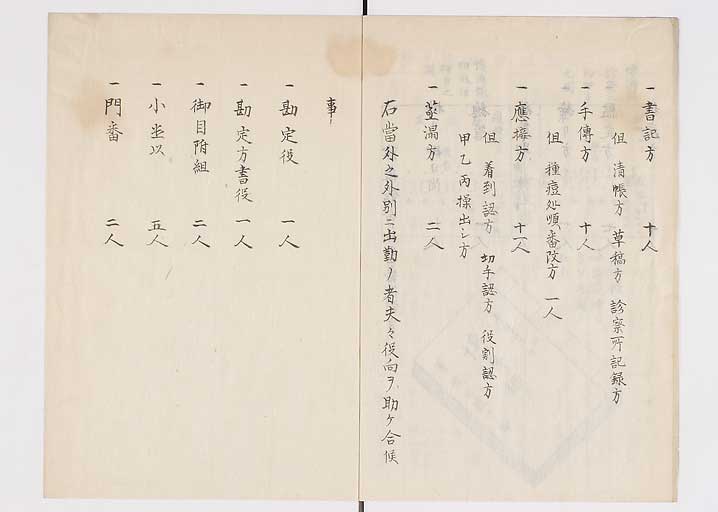 一 書記方 十人
但 清帳方 草稿方 診察所記録方
一 手傳方 十人
但 種痘処順番改方 一人
一 應接方 十一人
但 着到認方 切手認方 役割認方
甲乙丙操出シ方
一 薬湯方 二人
右當外之外別ニ出勤ノ者夫々役向ヲ助ケ合候
事
一 勘定役 一人
一 勘定方書役 一人
一 御目附組 二人
一 小坐以 五人
一 門番 二人